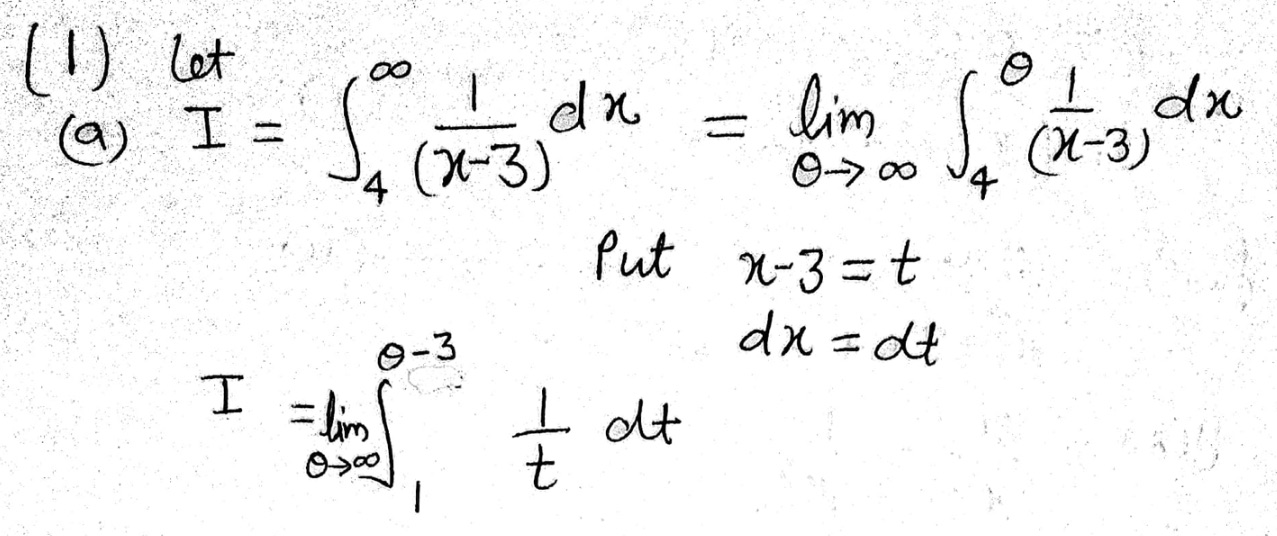 (1) let
(a) I = ∫₄^∞ 1/(x-3) dx = lim θ→∞ ∫₄^θ 1/(x-3) dx
Put x-3 = t
dx = dt
I = lim θ→∞ ∫₁^(θ-3) 1/t dt